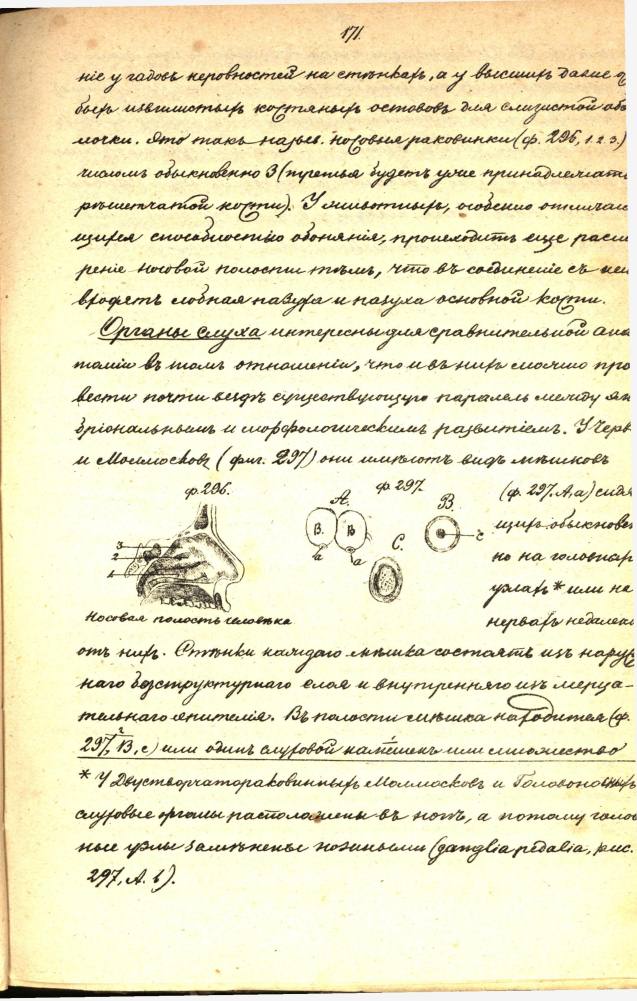 171.
ніе у гадовъ неровностей на стѣнкахъ, а у высшихъ далѣе
быхъ извилистыхъ костяныхъ остововъ для слизистой обо
лочки. Это такъ назыв. носовыя раковинки (ф. 296, 1. 2. 3.)
числомъ обыкновенно 3 (третья будетъ уже принадлежать
рѣшетчатой кости). У животныхъ, особенно отличаю
щихся способностью обонянія, происходитъ еще расши
реніе носовой полости тѣмъ, что въ соединеніе съ ней
входятъ лобная пазуха и пазуха основной кости.
Органы слуха интересны для сравнительной ана
томіи въ томъ отношеніи, что и въ нихъ можно про
вести почти вездѣ существующую паралель между эм
бріональнымъ и морфологическимъ развитіемъ. У Черв
и Моллюсковъ (фиг. 297) они имѣютъ видъ мѣшковъ
ф. 296.
3
2
1
Носовая полость человѣка
ф. 297.
A.
B.
B.
b
a
B.
c
C.
(ф. 297. А. а) сидя
щихъ обыкновен
но на головныхъ
узлахъ * или на
нервахъ недалеко
отъ нихъ. Стѣнки каждаго мѣшка состоятъ изъ наруж
наго безструктурнаго слоя и внутренняго изъ мерца-
тельнаго эпителія. Въ полости мѣшка находится (ф.
297, B, c) или одинъ слуховой камешекъ или множество
* У Двустворчатораковинныхъ Моллюсковъ и Головоногихъ
слуховые органы расположены въ ногѣ, а потому голов
ные узлы замѣнены ножными (ganglia pedalia, рис.
297, A. b).